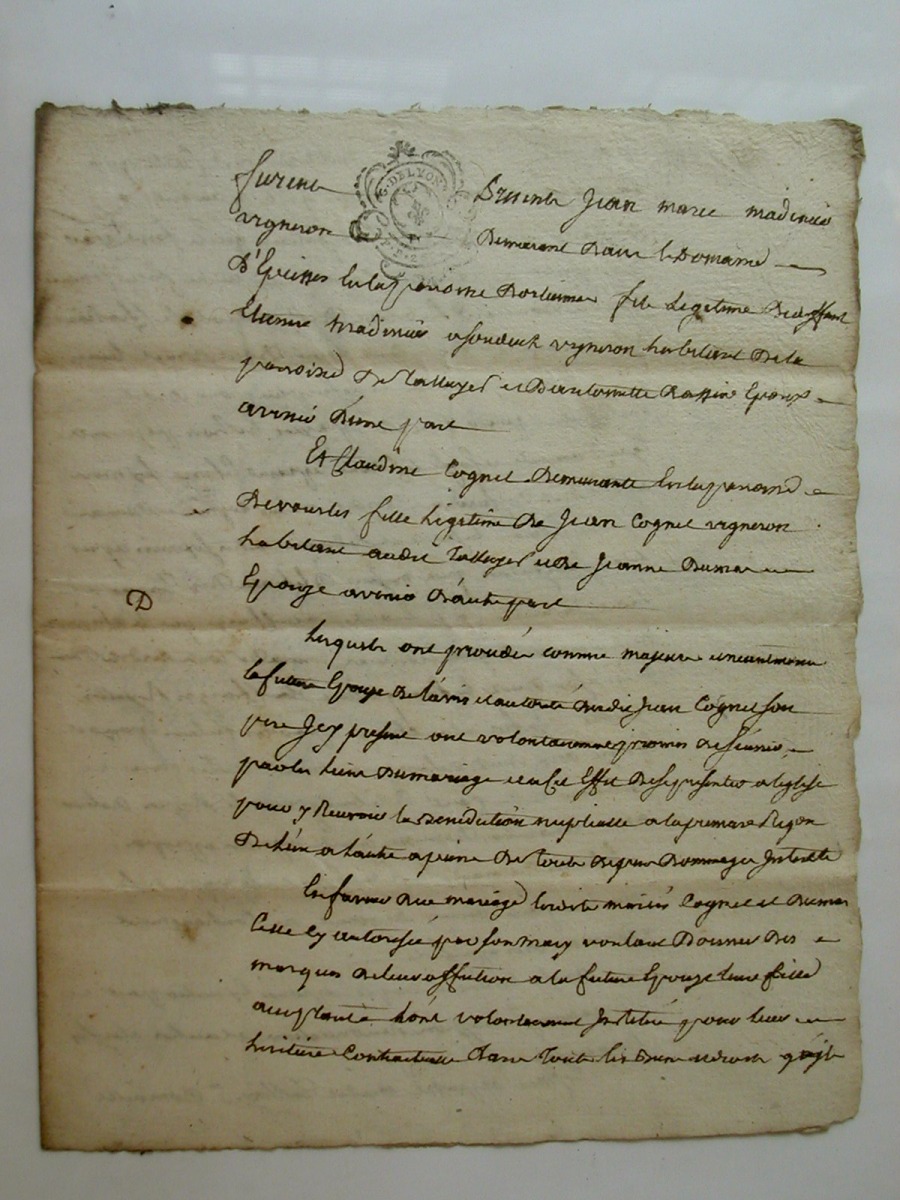 furent presents Jean marie madinié
G. DE LYON
vigneron Demeurant Dans le Domaine
D'Epeisses en la paroisse fils Legitime De deffunt
Etienne madinié vigneron habitant De la
paroisse De Talluyes et D'antoinette Epoux
avenir D'une part
Et Claudine Cognet Demeurante en la paroisse
De vourles fille Legitime De Jean Cognet vigneron
habitant audit Talluyes et De Jeanne Dumas
Epouze avenir D'autre part
Lesquels ont procedé comme majeurs
la future Epouze De l'avis et autorité dudit Jean Cognet son
pere Icy present ont volontairement promis de s'unir
par les liens Du mariage et a cet Effet De se presenter a l'eglise
pour y Recevoir la Benediction nuptialle a la premiere Requon
De l'un a l'autre a peine De tous Depens Dommages Interets
En faveur Du mariage lesdits mariés Cognet et Dumas
Cette cy autorisée par son mary voulant Donner Des
marques De leur affection a la future Epouze leur fille
acceptante L'ont volontairement Institué pour leur
heritiere Contractuelle Dans Tous les Biens et droits qu'ils
D